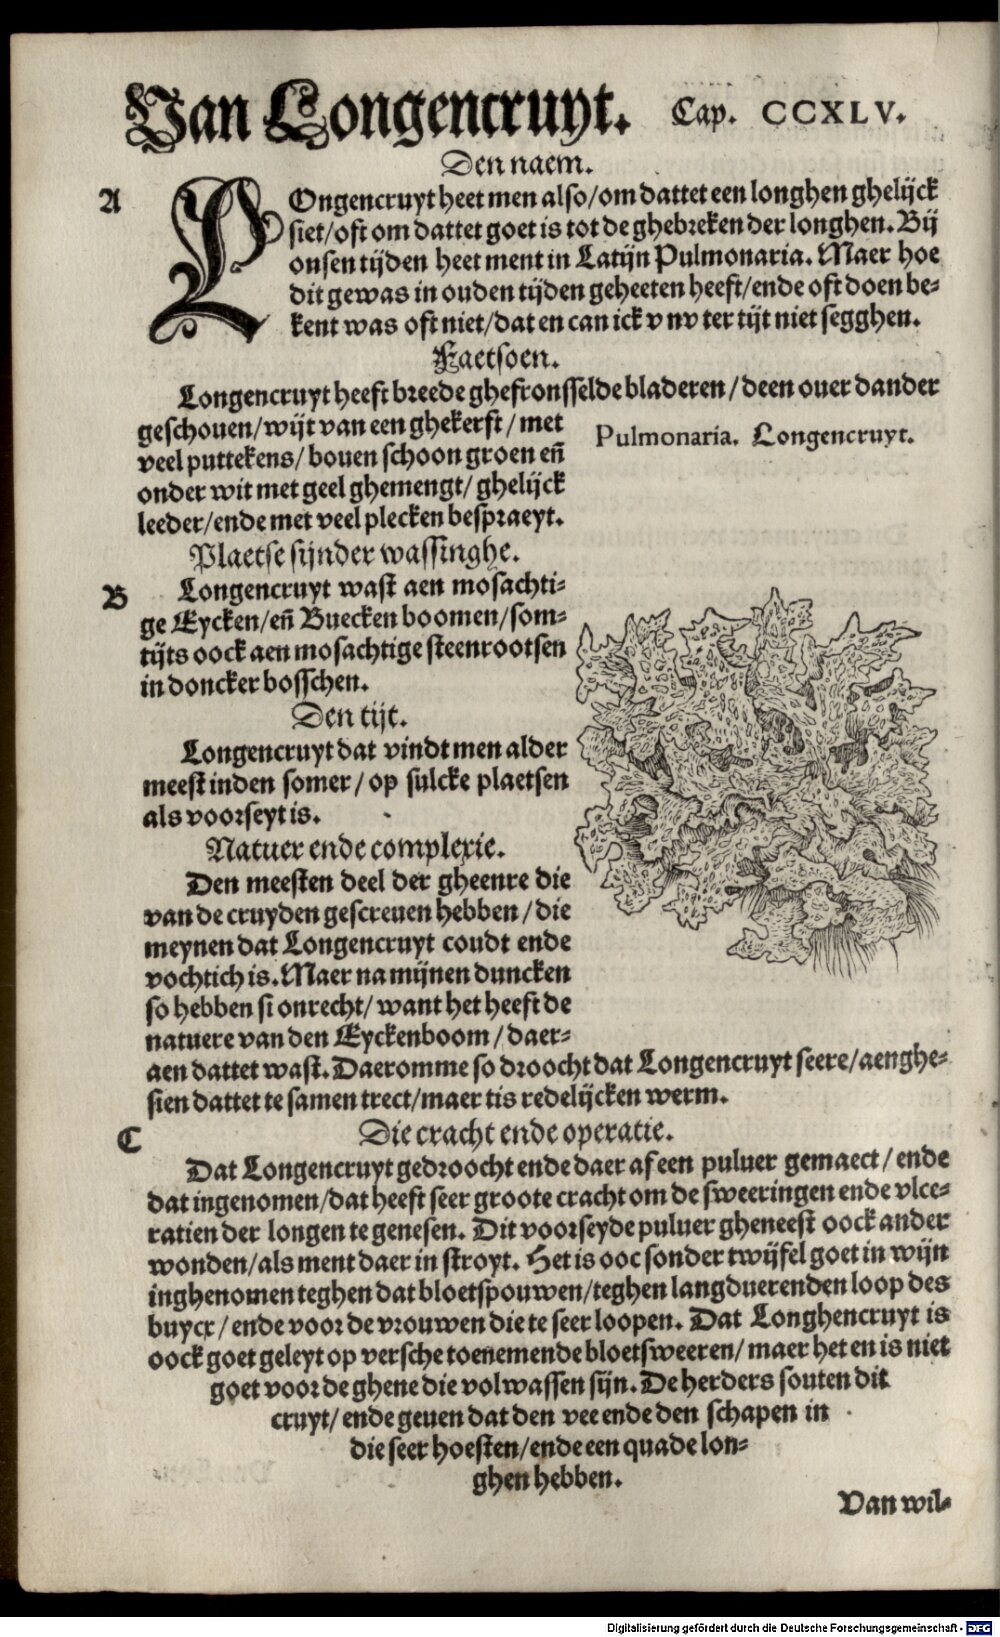 Van Longencruyt. Cap. CCXLV.
Den naem.
A
LOngencruyt heet men also/om dattet een longhen ghelijck
siet/oft om dattet goet is tot de ghebreken der longhen. Bij
onsen tijden heet ment in Latijn Pulmonaria. Maer hoe
dit gewas in ouden tijden geheeten heeft/ende oft doen be-
kent was oft niet/dat en can ick v nv ter tijt niet segghen.
Faetsoen.
Longencruyt heeft breede ghefronsselde bladeren/deen ouer dander
geschouen/wijt van een ghekerft/met
veel puttekens/bouen schoon groen eñ
onder wit met geel ghemengt/ghelijck
leeder/ende met veel plecken bespraeyt.
Pulmonaria. Longencruyt.
Plaetse sijnder wassinghe.
B
Longencruyt wast aen mosachti-
ge Eycken/eñ Buecken boomen/som-
tijts oock aen mosachtige steenrootsen
in doncker bosschen.
Den tijt.
Longencruyt dat vindt men alder
meest inden somer/op sulcke plaetsen
als voorseyt is.
Natuer ende complexie.
Den meesten deel der gheenre die
van de cruyden gescreuen hebben/die
meynen dat Longencruyt coudt ende
vochtich is. Maer na mijnen duncken
so hebben si onrecht/want het heeft de
natuere van den Eyckenboom/daer-
aen dattet wast. Daeromme so droocht dat Longencruyt seere/aenghe-
sien dattet te samen trect/maer tis redelijcken werm.
Die cracht ende operatie.
C
Dat Longencruyt gedroocht ende daer af een puluer gemaect/ende
dat ingenomen/dat heeft seer groote cracht om de sweeringen ende vlce-
ratien der longen te genesen. Dit voorseyde puluer gheneest oock ander
wonden/als ment daer in stroyt. Het is ooc sonder twijfel goet in wijn
inghenomen teghen dat bloetspouwen/teghen langduerenden loop des
buycx/ende voor de vrouwen die te seer loopen. Dat Longhencruyt is
oock goet geleyt op versche toenemende bloetsweeren/maer het en is niet
goet voor de ghene die volwassen sijn. De herders souten dit
cruyt/ende geuen dat den vee ende den schapen in
die seer hoesten/ende een quade lon-
ghen hebben.
Van wil-
Digitalisierung gefördert durch die Deutsche Forschungsgemeinschaft - DFG